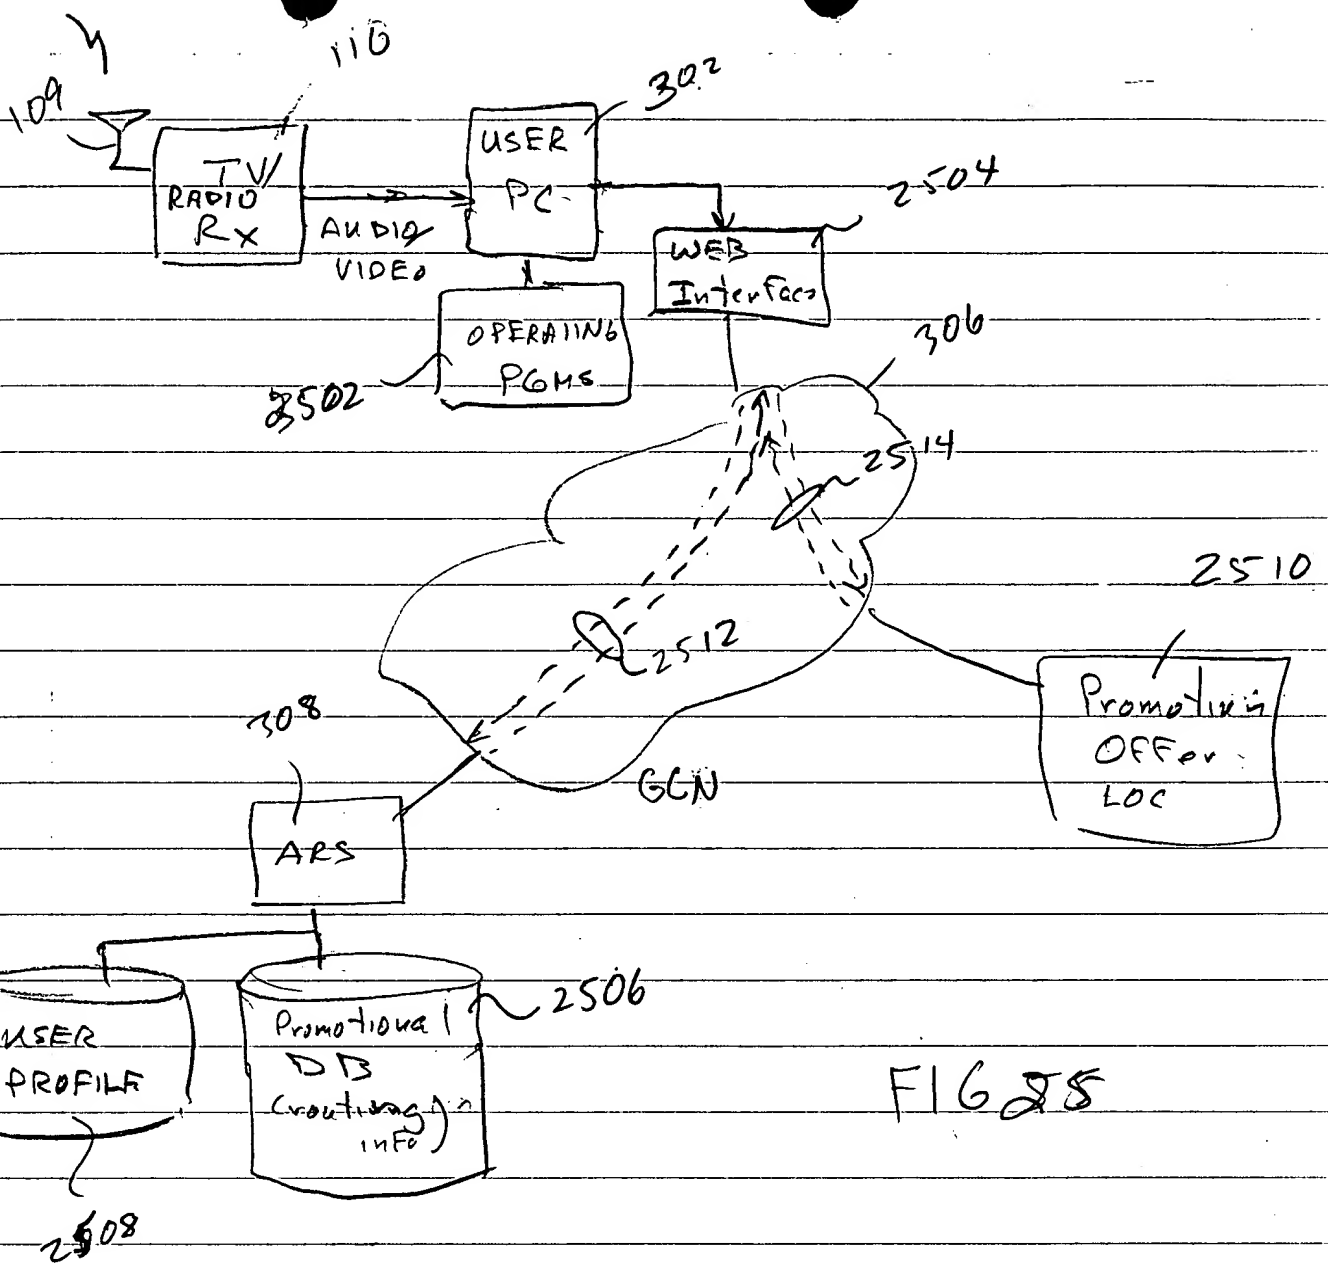 110
109
302
TV/
RADIO
Rx
AUDIO/
VIDEO
USER
PC
2504
WEB
Interface
OPERATING
PGMS
2502
306
2514
2510
2512
Promotion
OFFer
LOC
308
GCN
ARS
2506
USER
PROFILE
Promotional
DB
(routing
info)
2508
FIG 25